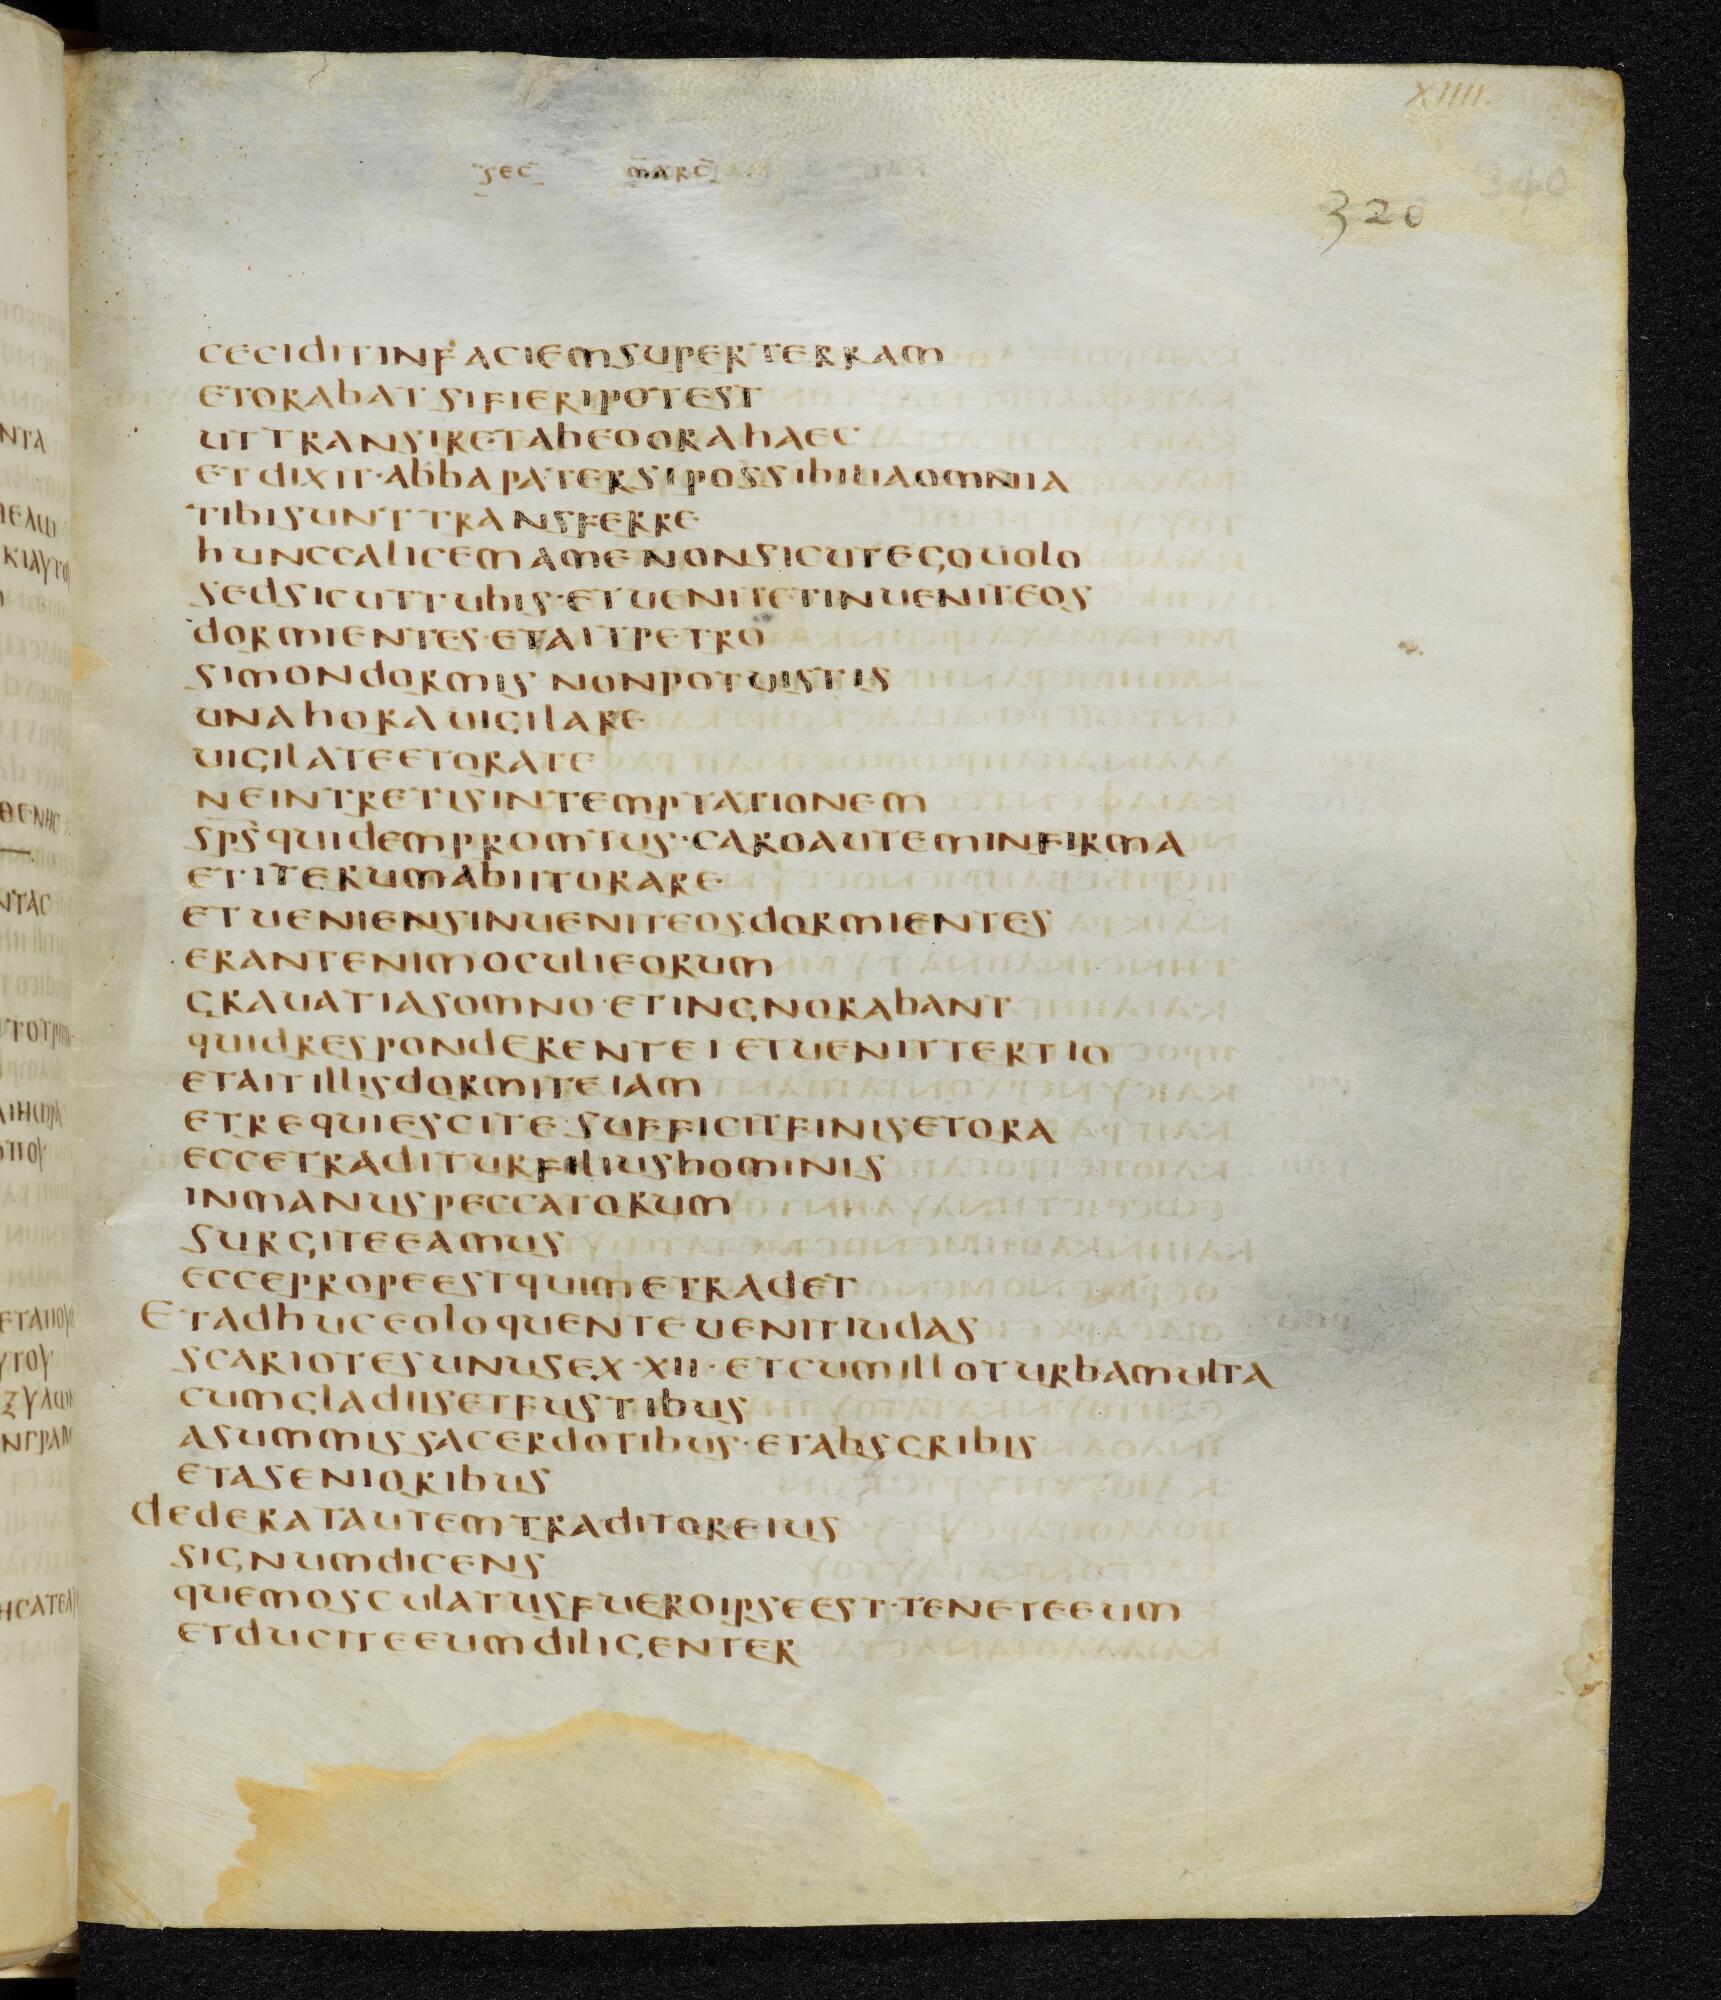 XIIII.
340
sec marc
320
ceciditinfaciemsuperterram
etorabat sifieripotest
uttransiretabeoorahaec
etdixit·abbapatersipossibiliaomnia
tibisunttransferre
hunccalicemamenonsicutegouolo
sedsicuttubis·etuenitetinueniteos
dormientes·etaitpetro
simondormis nonpotuistis
unahorauigilare
uigilateetorate
neintretisintemptationem
spsquidempromtus·caroauteminfirma
etiterumabiitorare
etueniensinueniteosdormientes
erantenimoculieorum
grauatiasomno·etingnorabant
quidresponderentei etuenittertio
etaitillisdormiteiam
etrequiescite·sufficitfinisetora
eccetraditurfiliushominis
inmanuspeccatorum
surgiteeamus
eccepropeestquimetradet
Etadhuceoloquenteuenitiudas
scariotesunusex·xii·etcumilloturbamulta
cumgladiisetfustibus
asummissacerdotibus·etabscribis
etasenioribus
dederatautemtraditoreius
signumdicens
quemosculatusfueroipseest·teneteeum
etduciteeumdiligenter